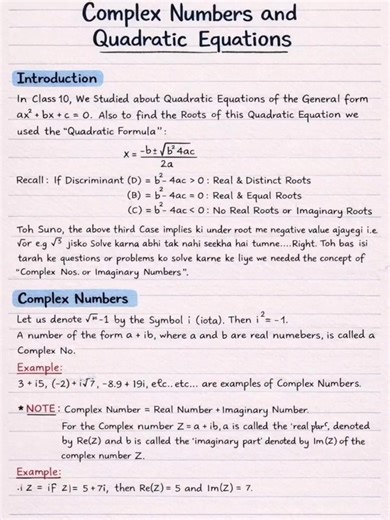 Complex Numbers and
Quadratic Equations
Introduction
In Class 10, We Studied about Quadratic Equations of the General form
ax² + bx + c = 0. Also to find the Roots of this Quadratic Equation we
used the "Quadratic Formula" :
x = -b±√b² 4ac / 2a
Recall : If Discriminant (D) = b²- 4ac > 0 : Real & Distinct Roots
(B) = b²- 4ac = 0 : Real & Equal Roots
(C) = b²- 4ac < 0 : No Real Roots or Imaginary Roots
Toh Suno, the above third Case implies ki under root me negative value ajayegi i.e
√or e.g √5 jisko Solve karna abhi tak nahi seekha hai tumne....Right. Toh bas isi
tarah ke questions or problems ko solve karne ke liye we needed the concept of
"Complex Nos. or Imaginary Numbers".
Complex Numbers
Let us denote -1 by the Symbol i (iota). Then i² = -1.
A number of the form a + ib, where a and b are real numebers, is called a
Complex No.
Example:
3 + i5, (-2) + i√7, -8.9 + 19i, etc.. etc... are examples of Complex Numbers.
★NOTE : Complex Number = Real Number + Imaginary Number.
For the Complex number Z = a + ib, a is called the 'real part', denoted
by Re(Z) and b is called the 'imaginary part' denoted by Im(Z) of the
complex number Z.
Example:
.i Z = if Z)= 5 + 7i, then Re(Z) = 5 and Im(Z) = 7.